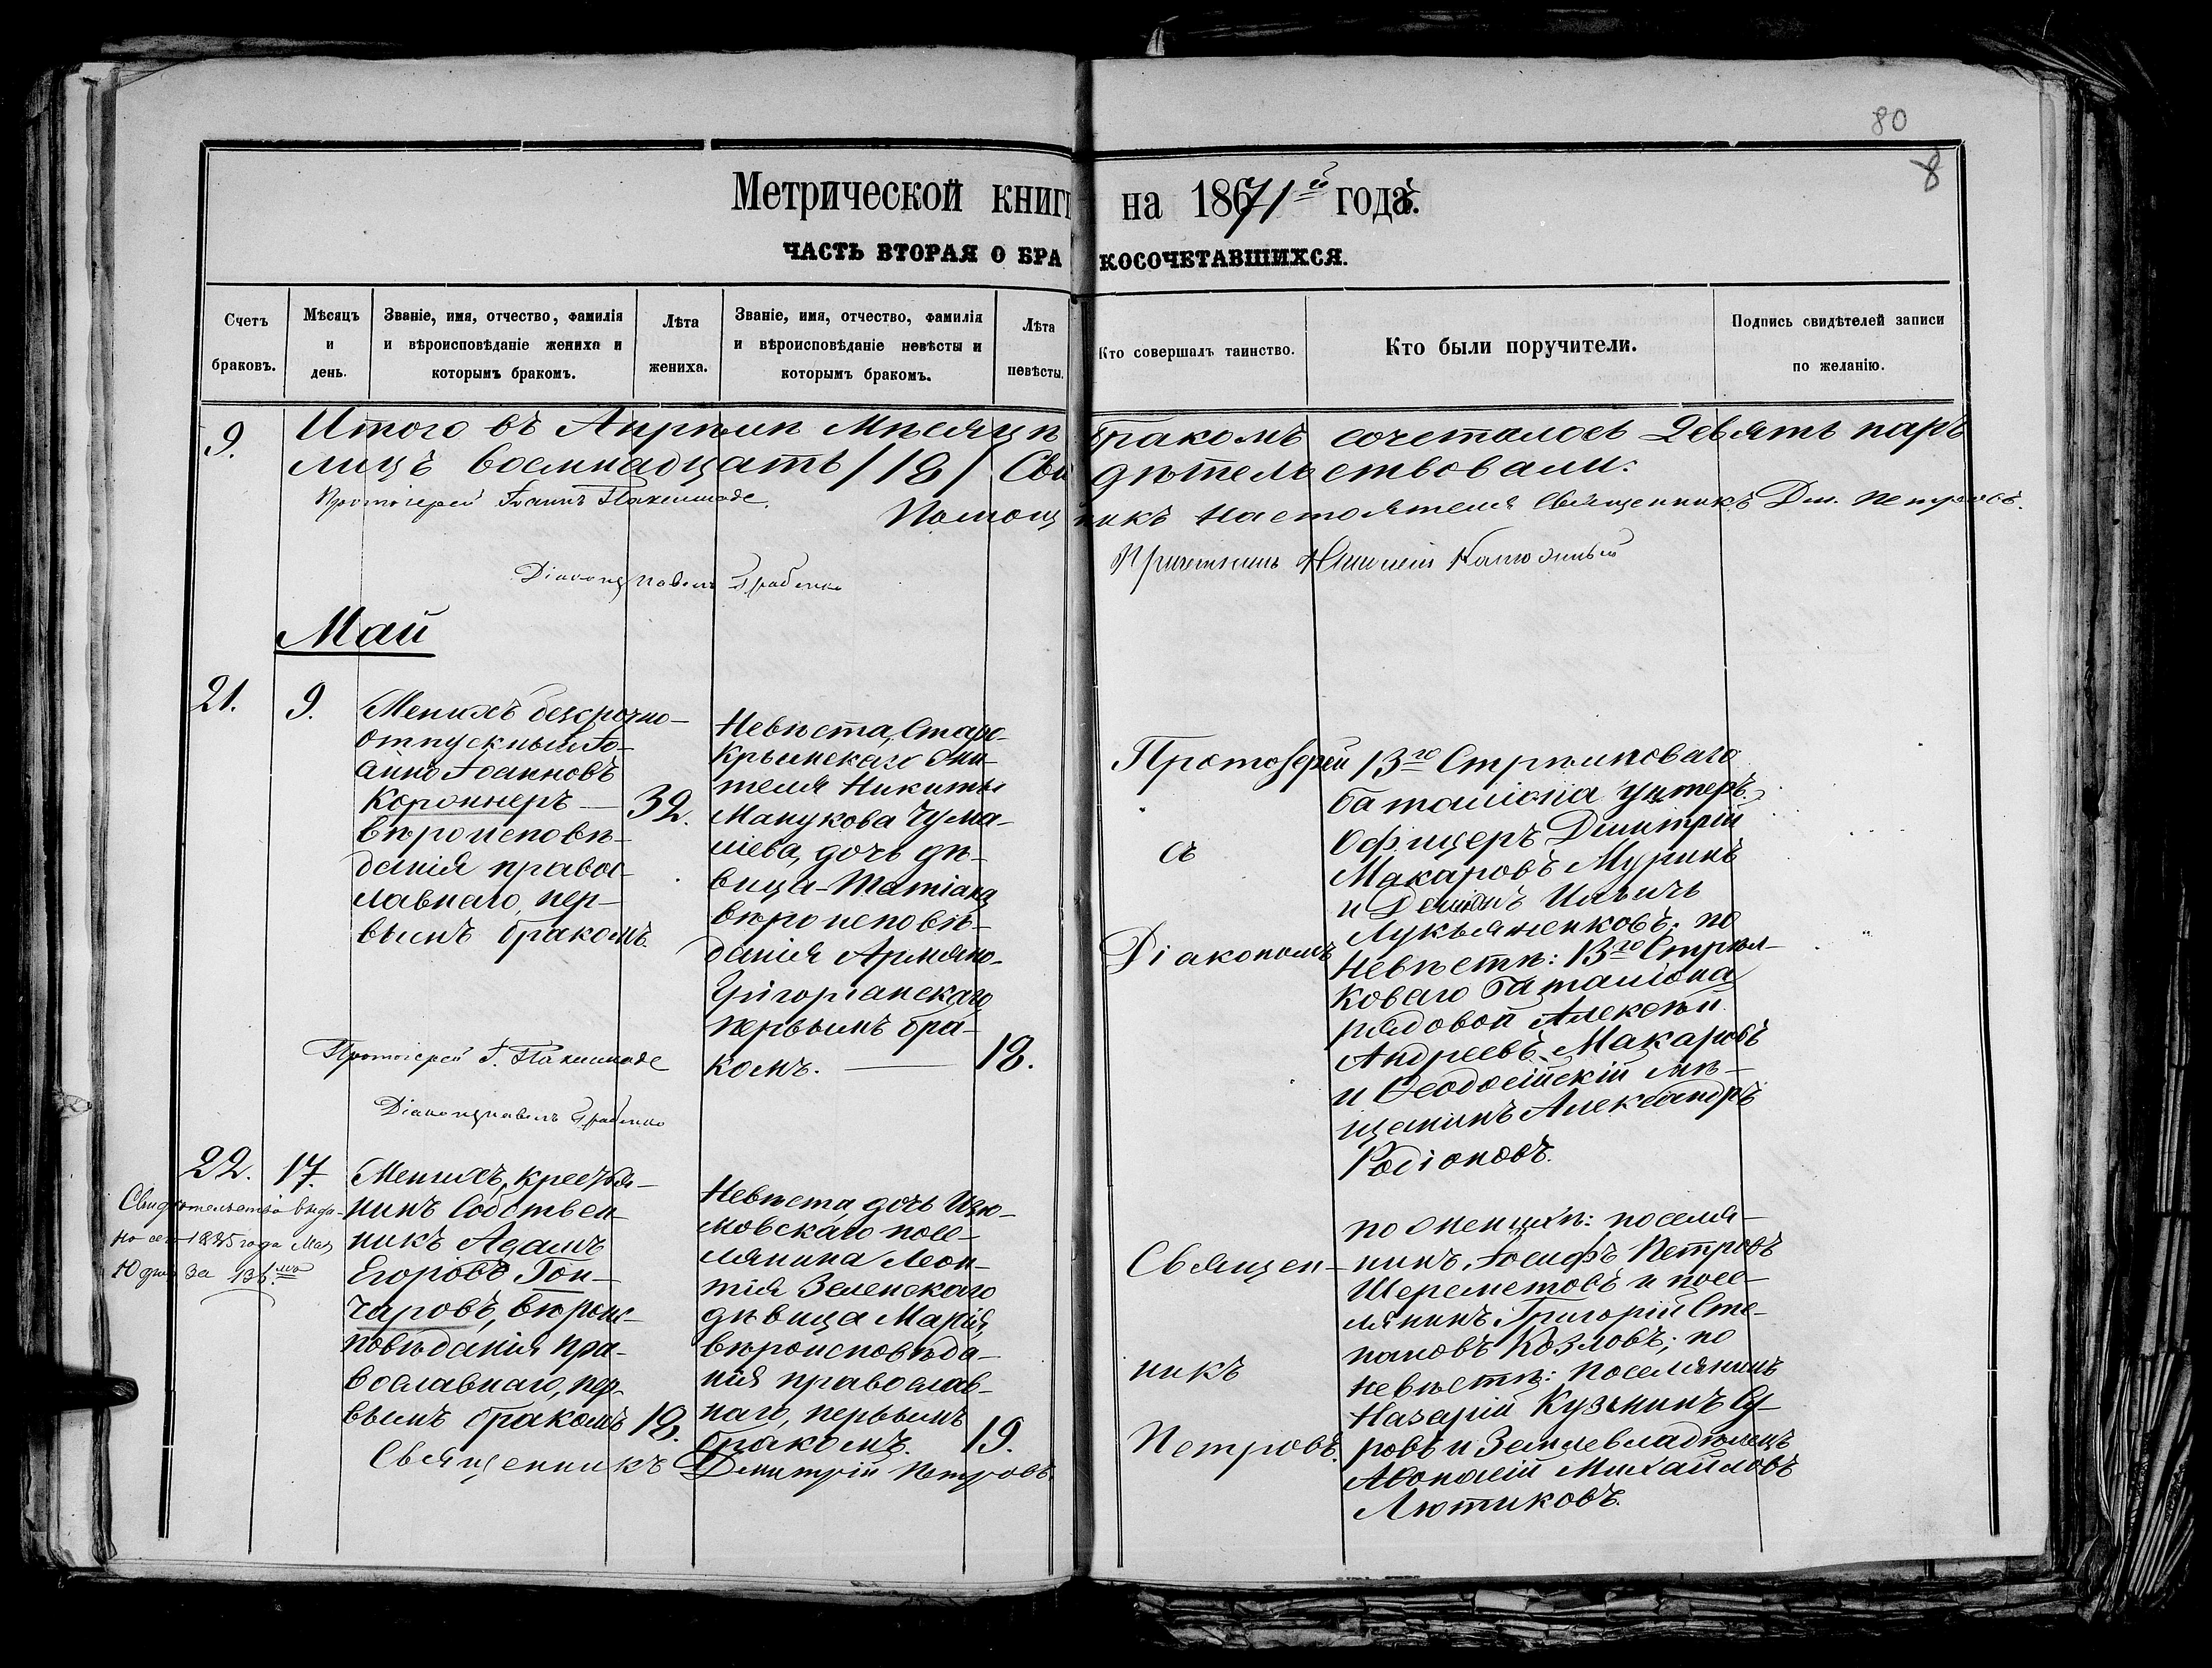 80
8
Метрической книги на 1871й годъ.
ЧАСТЬ ВТОРАЯ О БРАКОСОЧЕТАВШИХСЯ.
Счетъ браковъ.
Мѣсяцъ и день.
Званіе, имя, отчество, фамилія и вѣроисповѣданіе жениха и которымъ бракомъ.
Лѣта жениха.
Званіе, имя, отчество, фамилія и вѣроисповѣданіе невѣсты и которымъ бракомъ.
Лѣта невѣсты.
Кто совершалъ таинство.
Кто были поручители.
Подпись свидѣтелей записи по желанію.
9. Итого въ Апрѣлѣ Мѣсяцѣ бракомъ сочеталось Девять паръ
лицъ восемнадцать /18/ Свидѣтельствовали:
Протоіерей Іоаннъ
Помощникъ Настоятеля Священникъ Дм. Петровъ.
Діаконъ Павелъ Грабенко
Май
21.
9.
Женихъ безсрочно-
отпускный Іо-
аннъ Іоанновъ
Короннеръ —
вѣроисповѣ-
данія правос-
лавнаго, пер-
вымъ бракомъ
32.
Невѣста, Старо-
Крымскаго Жи-
теля Никиты
Манукова Чума-
ніева, дочь дѣ-
вица Татіана
вѣроисповѣ-
данія Армяно-
Григоріанскаго,
первымъ бра-
комъ. —
18.
Протоіерей
съ
Діакономъ
13го Стрѣлковаго
баталіона унтеръ-
Офицеръ Димитрій
Макаровъ Муринъ
и Демианъ Ильичъ
Лукьяненковъ; по
Невѣстѣ: 13го Стрѣл-
коваго баталіона
рядовой Алексѣй
Андреевъ Макаровъ
и Ѳеодосійскій мѣ-
щанинъ Александръ
Родіоновъ.
Протоіерей І.
Діаконъ Павелъ Грабенко
22.
17.
Свидѣтельство выда-
но сего 1885 года Мая
10 дня за 136 №
Женихъ, крестья-
нинъ Собствен-
никъ Адамъ
Егоровъ Гон-
чаровъ, вѣроис-
повѣданія пра-
вославнаго, пер-
вымъ бракомъ
18.
Невѣста, дочь Изю-
мовскаго посе-
лянина Леон-
тія Зеленскаго
дѣвица Марія,
вѣроисповѣда-
нія православ-
наго, первымъ
бракомъ.
19.
Священ-
никъ
Петровъ.
по Женихѣ: поселя-
нинъ Іосифъ Петровъ
Шереметовъ и посе-
лянинъ Григорій Сте-
пановъ Козловъ; по
невѣстѣ: поселянинъ
Назарій Кузминъ Су-
ровъ и Землевладѣлецъ
Аѳонасій Михайловъ
Лютиковъ.
Священникъ Димитрій Петровъ